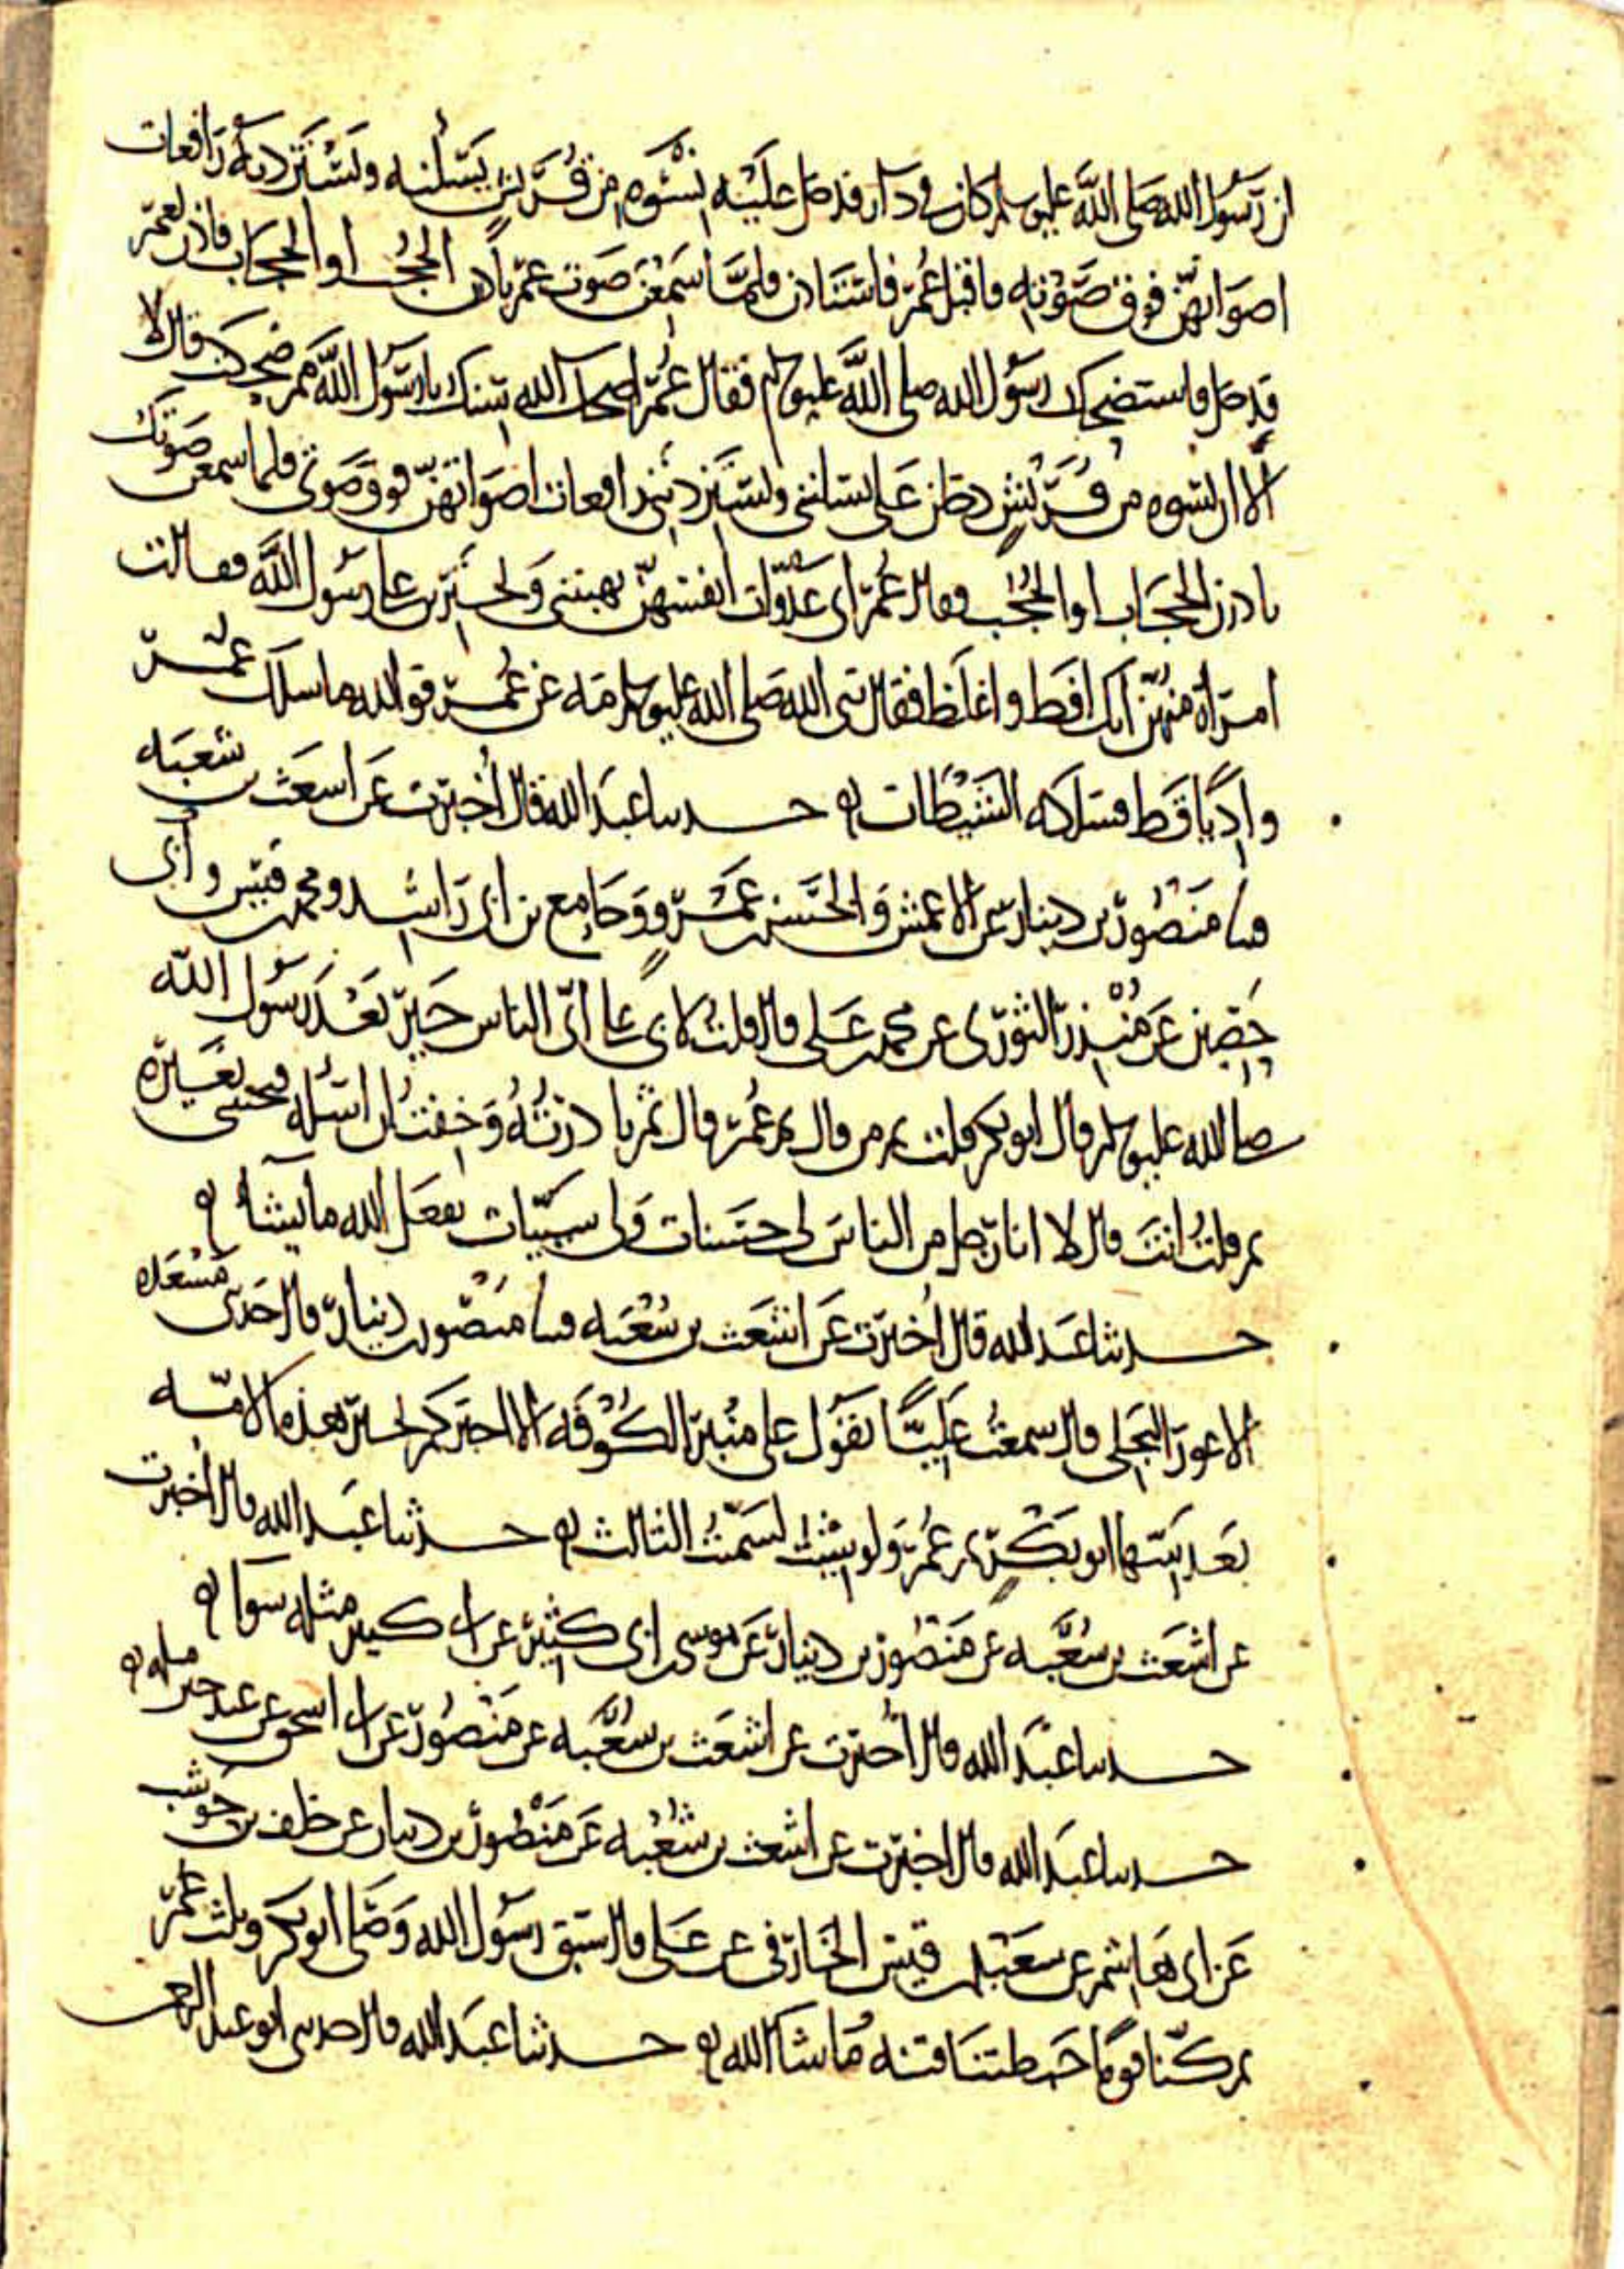 ان رسول الله صلى الله عليه وسلم كان في دار فدخل عليه نسوة من قريش يسئلنه ويستزدنه رافعات
اصواتهن فوق صوته فاقبل عمر فاستاذن فلما سمعن صوت عمر بادرن الحجب او الحجاب فاذن لعمر
فدخل فاستضحك رسول الله صلى الله عليه وسلم فقال عمر اضحك الله سنك يا رسول الله مم ضحكت قال لا
الا ان نسوه من قريش دخلن على يسلنني ويستزدنني رافعات اصواتهن فوق صوتي فلما سمعن صوتك
بادرن الحجاب او الحجب فقال عمر اى عدوات انفسهن تهبنني وتجترين على رسول الله فقالت
امرأة منهن انك افظ واغلظ فقال نبى الله صلى الله عليه وسلم مه عن عمر فوالله ما سلك عمر
واديا قط فسلكه الشيطان حدثنا عبد الله قال أخبرت عن اشعث بن شعبه
ثنا منصور بن دينار عن الاعمش والحسن بن عمرو وجامع بن ابى راشد ومحمد بن قيس وابى
حصين عن منذر الثورى عن محمد بن على قال قلت لابى على اى الناس خير بعد رسول الله
صلى الله عليه وسلم قال ابو بكر قلت ثم من قال ثم عمر قال ثم بادرته وخفت ان اسئله فيجيبنى بغيره
ثم قلت انت قال لا انا رجل من الناس لى حسنات ولى سيئات يفعل الله ما يشا
حدثنا عبد الله قال أخبرت عن اشعث بن شعبه ثنا منصور بن دينار قال حدثنى مسعده
الاعور البجلى قال سمعت عليا يقول على منبر الكوفه الا اخبركم بخير هذه الامه
بعد نبيها ابو بكر ثم عمر ولو شئت لسميت الثالث حدثنا عبد الله قال أخبرت
عن اشعث بن شعبه عن منصور بن دينار عن موسى بن ابى كثير عن ابى كثير مثله سوا
حدثنا عبد الله قال أخبرت عن اشعث بن شعبه عن منصور عن ابى اسحق عن عبد خير مثله
حدثنا عبد الله قال أخبرت عن اشعث بن شعبه عن منصور بن دينار عن خلف بن حوشب
عن ابى هاشم عن سعد بن قيس الخارفى عن على قال سبق رسول الله وصلى ابو بكر وثلث عمر
ثم كنا قوما خبطتنا فتنه ما شا الله حدثنا عبد الله قال حدثنى ابو عبد الرحمن